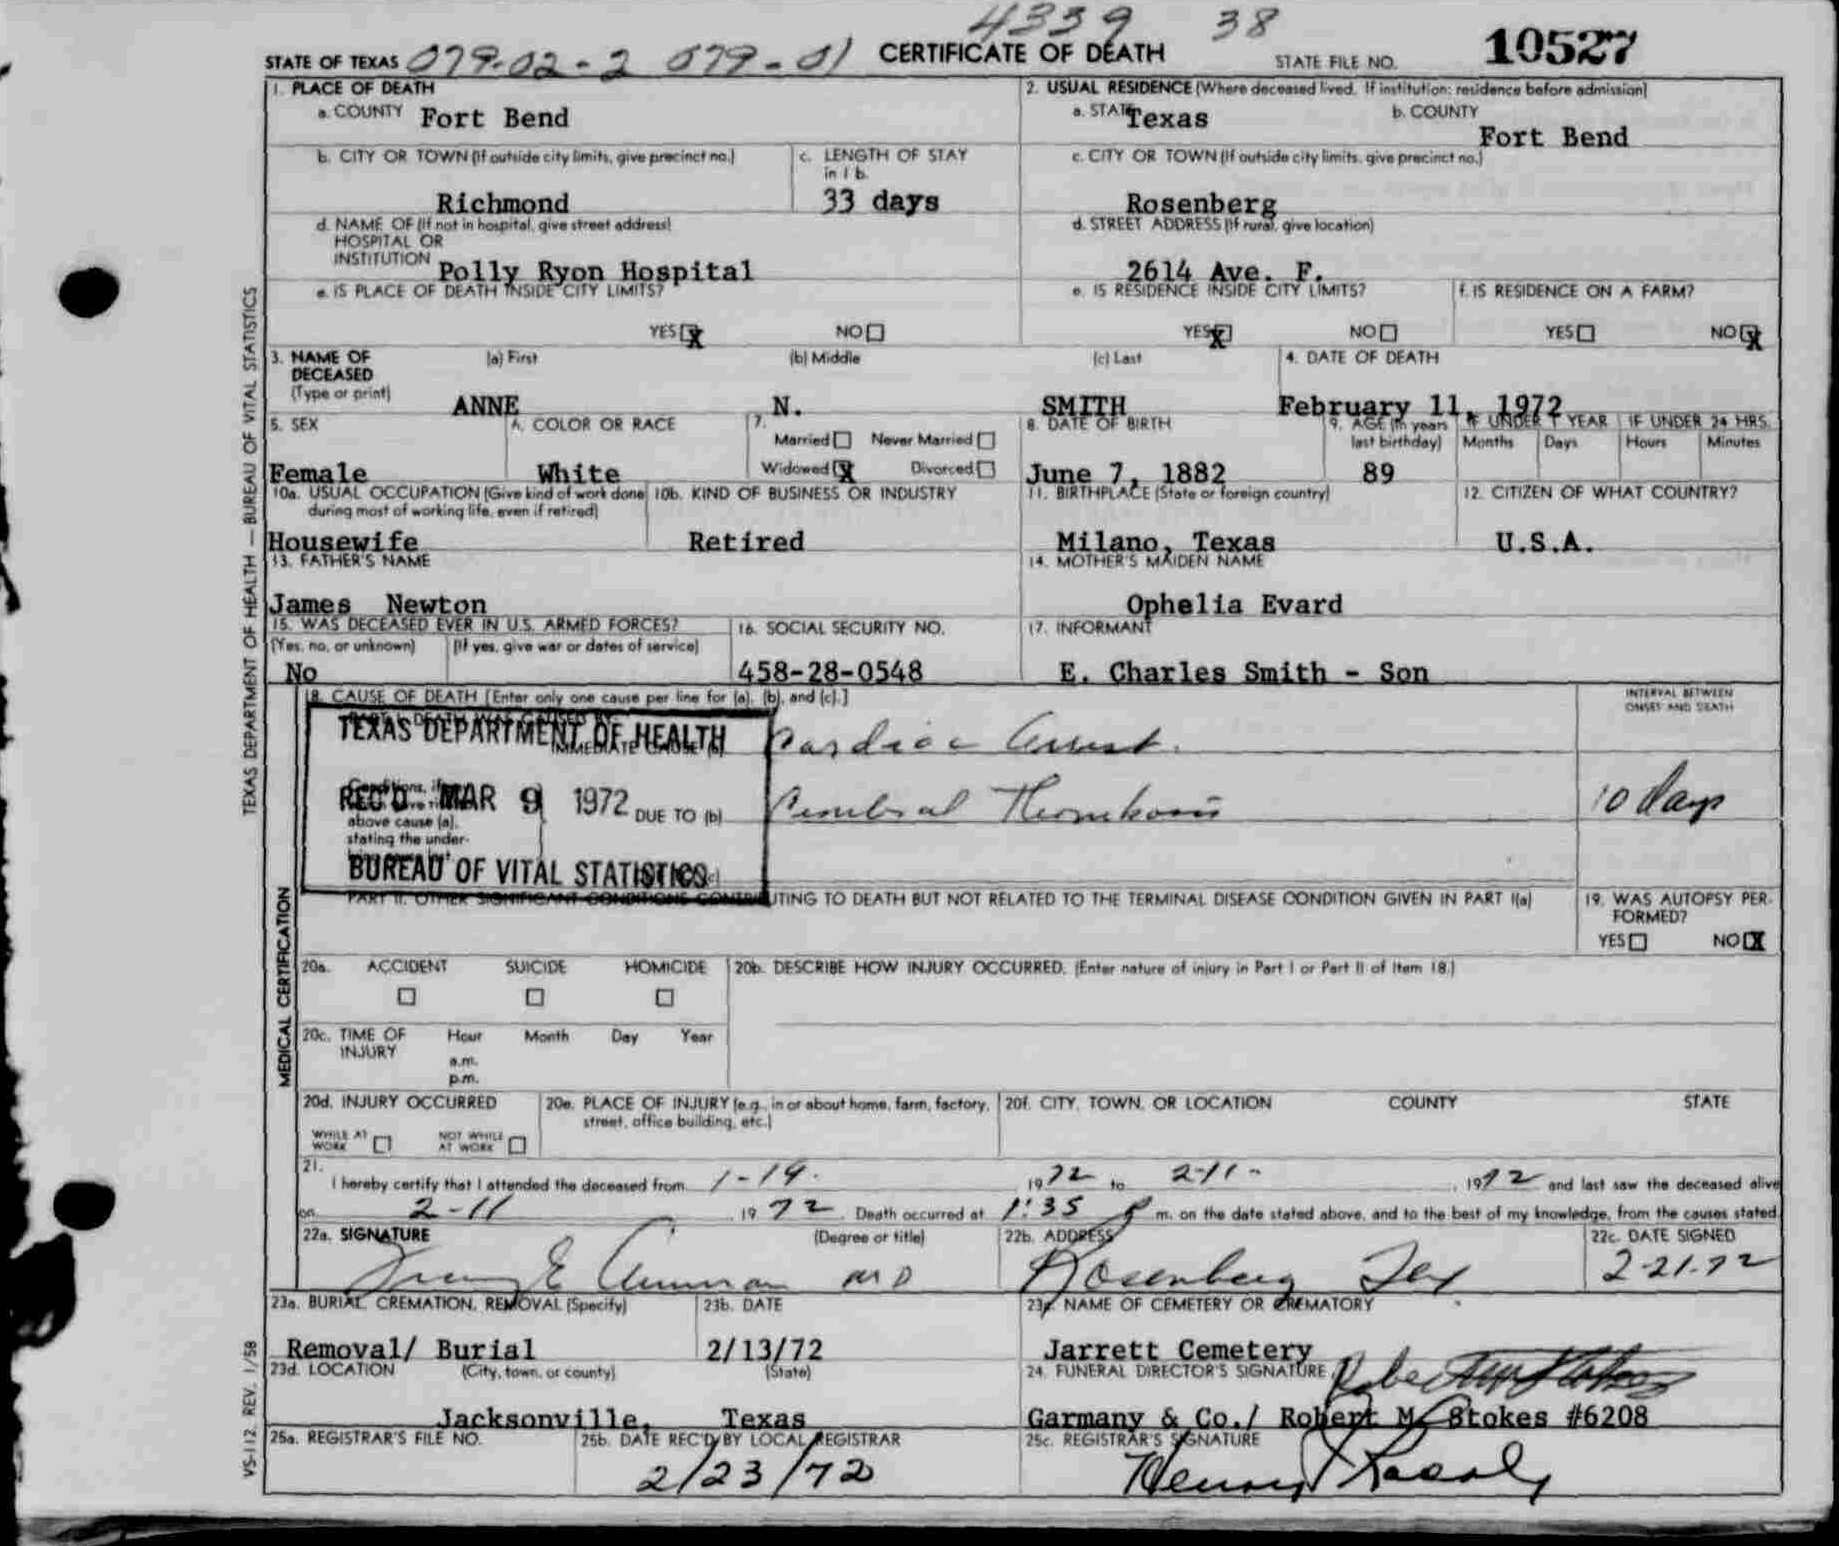 4339 38
STATE OF TEXAS 079-02-2 079-01 CERTIFICATE OF DEATH STATE FILE NO. 10527
1. PLACE OF DEATH
a. COUNTY Fort Bend
2. USUAL RESIDENCE (Where deceased lived. If institution: residence before admission)
a. STATE Texas b. COUNTY Fort Bend
b. CITY OR TOWN (If outside city limits, give precinct no.) Richmond
c. LENGTH OF STAY in 1 b. 33 days
c. CITY OR TOWN (If outside city limits, give precinct no.) Rosenberg
d. NAME OF (If not in hospital, give street address)
HOSPITAL OR
INSTITUTION Polly Ryon Hospital
d. STREET ADDRESS (If rural, give location)
2614 Ave. F.
e. IS PLACE OF DEATH INSIDE CITY LIMITS?
YES X NO
e. IS RESIDENCE INSIDE CITY LIMITS?
YES X NO
f. IS RESIDENCE ON A FARM?
YES NO X
3. NAME OF DECEASED (Type or print)
(a) First (b) Middle (c) Last
ANNE N. SMITH
4. DATE OF DEATH
February 11, 1972
5. SEX
Female
6. COLOR OR RACE
White
7.
Married Never Married
Widowed X Divorced
8. DATE OF BIRTH
June 7, 1882
9. AGE (In years last birthday)
89
IF UNDER 1 YEAR
Months Days
IF UNDER 24 HRS.
Hours Minutes
10a. USUAL OCCUPATION (Give kind of work done during most of working life, even if retired)
Housewife
10b. KIND OF BUSINESS OR INDUSTRY
Retired
11. BIRTHPLACE (State or foreign country)
Milano, Texas
12. CITIZEN OF WHAT COUNTRY?
U.S.A.
13. FATHER'S NAME
James Newton
14. MOTHER'S MAIDEN NAME
Ophelia Evard
15. WAS DECEASED EVER IN U.S. ARMED FORCES?
(Yes, no, or unknown) (If yes, give war or dates of service)
No
16. SOCIAL SECURITY NO.
458-28-0548
17. INFORMANT
E. Charles Smith - Son
18. CAUSE OF DEATH [Enter only one cause per line for (a), (b), and (c).]
INTERVAL BETWEEN
ONSET AND DEATH
TEXAS DEPARTMENT OF HEALTH
Cardiac Arrest.
REC'D MAR 9 1972
above cause (a),
stating the under-
DUE TO (b) Cerebral Thrombosis 10 days
BUREAU OF VITAL STATISTICS
PART II. OTHER SIGNIFICANT CONDITIONS CONTRIBUTING TO DEATH BUT NOT RELATED TO THE TERMINAL DISEASE CONDITION GIVEN IN PART I(a)
19. WAS AUTOPSY PERFORMED?
YES NO X
20a. ACCIDENT SUICIDE HOMICIDE
20b. DESCRIBE HOW INJURY OCCURRED. (Enter nature of injury in Part I or Part II of Item 18.)
20c. TIME OF INJURY
Hour Month Day Year
a.m.
p.m.
20d. INJURY OCCURRED
WHILE AT WORK NOT WHILE AT WORK
20e. PLACE OF INJURY (e.g., in or about home, farm, factory, street, office building, etc.)
20f. CITY, TOWN, OR LOCATION COUNTY STATE
21.
I hereby certify that I attended the deceased from 1-19. 1972 to 2-11- , 1972 and last saw the deceased alive
on 2-11 , 1972. Death occurred at 1:35 P m. on the date stated above, and to the best of my knowledge, from the causes stated.
22a. SIGNATURE (Degree or title)
MD
22b. ADDRESS
Rosenberg Tex
22c. DATE SIGNED
2-21-72
23a. BURIAL, CREMATION, REMOVAL (Specify)
Removal/ Burial
23b. DATE
2/13/72
23c. NAME OF CEMETERY OR CREMATORY
Jarrett Cemetery
23d. LOCATION (City, town, or county) (State)
Jacksonville, Texas
24. FUNERAL DIRECTOR'S SIGNATURE
Garmany & Co./ Robert M. Stokes #6208
25a. REGISTRAR'S FILE NO.
25b. DATE REC'D BY LOCAL REGISTRAR
2/23/72
25c. REGISTRAR'S SIGNATURE
TEXAS DEPARTMENT OF HEALTH — BUREAU OF VITAL STATISTICS
MEDICAL CERTIFICATION
VS-112, REV. 1/58